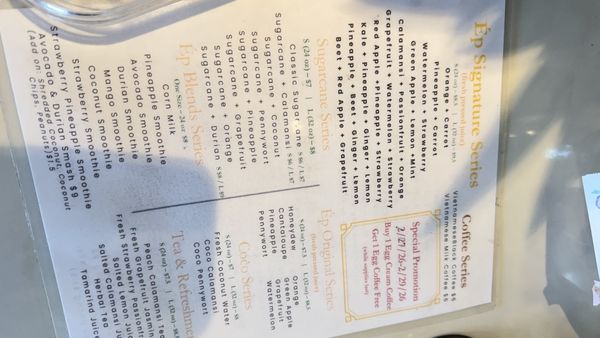 Ép Signature Series
(fresh pressed juice)
S (24 oz) - $8.5 | L (32 oz) - $9.5
Orange + Carrot
Pineapple + Carrot
Watermelon + Strawberry
Green Apple + Lemon + Mint
Calamansi + Passionfruit + Orange
Grapefruit + Watermelon + Strawberry
Red Apple + Pineapple + Strawberry
Kale + Pineapple + Ginger + Lemon
Pineapple + Beet + Ginger + Lemon
Beet + Red Apple + Grapefruit
Sugarcane Series
S (24 oz) - $7 | L (32 oz) - $8
Classic Sugarcane $6 / L $7
Sugarcane + Calamansi $6 / L $7
Sugarcane + Coconut
Sugarcane + Pennywort
Sugarcane + Pineapple
Sugarcane + Grapefruit
Sugarcane + Orange
Sugarcane + Durian
Ép Blended Series
One Size - 24 oz $8
Corn Milk
Pineapple Smoothie
Avocado Smoothie
Durian Smoothie
Mango Smoothie
Coconut Smoothie
Strawberry Smoothie
Strawberry Pineapple Smoothie
Avocado & Durian Smash $9
(Add on: Shredded Coconut, Coconut
Chips, Peanuts) $1.5
Coffee Series
Vietnamese Black Coffee $5
Vietnamese Milk Coffee $5
Special Promotion
2/27/26-2/29/26
Buy 1 Egg Cream Coffee
Get 1 Egg Coffee Free
(while supplies last)
Ép Original Series
(fresh pressed juice)
S (24 oz) - $7.5 | L (32 oz) - $8.5
Honeydew
Cantaloupe
Pineapple
Pennywort
Orange
Green Apple
Grapefruit
Watermelon
Coco Series
S (24 oz) - $7 | L (32 oz) - $8
Fresh Coconut Water
Coco Calamansi
Coco Pennywort
Tea & Refreshme
S (24 oz) - $7.5 | L (32 oz) - $8.5
Peach Calamansi Tea
Fresh Grapefruit Jasmin
Fresh Strawberry Passionfr
Salted Lemon Juic
Salted Calamansi Ju
Herbal Tea
Tamarind Juice